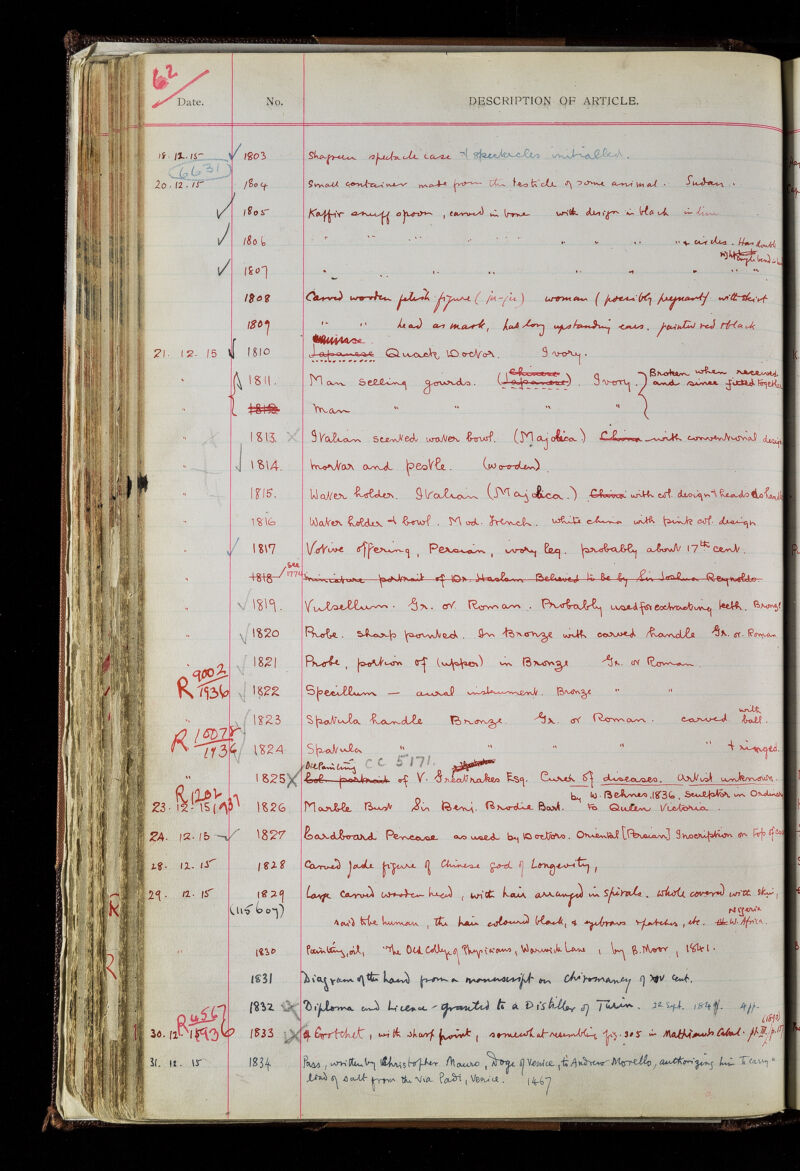 62
Date. No. DESCRIPTION OF ARTICLE.
18. 12. 15 1803 Shagreen spectacle case & spectacles initialled.
6631
20. 12. 15 1804 Small container made from the testicle of some animal. Sudan.
1805 Kaffir snuff spoon, carved in bone with design in black in line
1806 " " " " " " " " & circles. Has double
1807 " " " " " " "
1808 Carved wooden fetish figure (ju-ju) woman (possibly pregnant) with skirt
1809 " " head as mask, has long upstanding ears. painted red & black
Chinese
21. 12. 15 1810 Japanese Quack Doctor. Ivory.
Chinese Broken when received
" 1811. Man selling gourds. (Japanese). Ivory. and since fitted together
" 1812 Man " " " "
" 1813. X Italian scented water bowl. (Majolica) China with conventional design
" 1814. Mortar and pestle. (wooden)
" 1815. Water holder. Italian (Majolica.) China with col. design & heads as handles
1816 Water holder & bowl. Mod. French. white china with pink col. design
" 1817 Votive offering, Persian, ivory leg. probably about 17th cent.
see 1774
1818 miniature portrait of Dr. Haslam Believed to be by Sir Joshua Reynolds.
" 1819. Vulsellum. Gr. or Roman. Probably used for extracting teeth. Bronze
" 1820 Probe. sharp pointed. In Bronze with carved handle Gr. or Roman
" 1821 Probe, portion of (upper) in Bronze Gr. or Roman.
R 9002/1936 1822 Specillum — aural instrument. Bronze " "
with
1823 Spatula handle Bronze. Gr. or Roman. carved ball.
R 10078/1936 1824 Spatula " " " " " & ringed.
Oil Painting CC 5171.
1825 X Col. portrait of V. Greatrakes Esq. Curer of diseases. Artist unknown.
R 1202/1937 by W. Behnes, 1836, Sculptor in Ordinary
23. 12. 15 1826 Marble Bust Sir Benj. Brodie Bart. to Queen Victoria.
24. 12. 15 1827 Cardboard Pencase as used by Doctors. Oriental [Persian] Inscription on top of case
28. 12. 15 1828 Carved jade figure of Chinese god of Longevity,
29. 12. 15 1829 Large carved wooden head, with hair arranged in spirals. whole covered with skin,
R (115607) said to be human, the hair coloured black, & eyebrows & patches, etc. W. Africa.
Nigeria
" 1830 Painting, oil, "The Old College of Physicians, Warwick Lane, by B. Moor, 1841.
R 1831 Diagram of the hand from a manuscript on chiromancy of XV cent.
1832 Diploma and Licence - granted to a Distiller of Turin. 22 Sept. 184 4 pp.
R 4567/1936 (1598)
30. 12. 15 1833 X A Crotchet, with sharp point, somewhat resembling fig. 305 in
31. 12. 15 1834 Pass, written by Christopher Mauro, Doge of Venice, to Andrew Morello, authorizing him to carry a
load of salt from the Via Padi, Venice. 1467